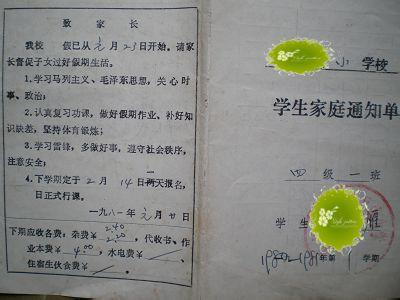 致 家 长
我校 假已从元月23日开始。请家
长督促子女过好假期生活。
1.学习马列主义、毛泽东思想,关心时
事、政治;
2.认真复习功课,做好假期作业、补好知
识缺差,坚持体育锻炼;
3.学习雷锋,多做好事,遵守社会秩序,
注意安全;
4.下学期定于2月14日一天报名,
日正式行课。
一九八一年元月廿日
下期应收各费:杂费¥2.20,代收书、作
业本费¥4.00,水电费¥
住宿生伙食费¥
小 学校
学生家庭通知单
四级一班
学生
1980—1981年第1学期